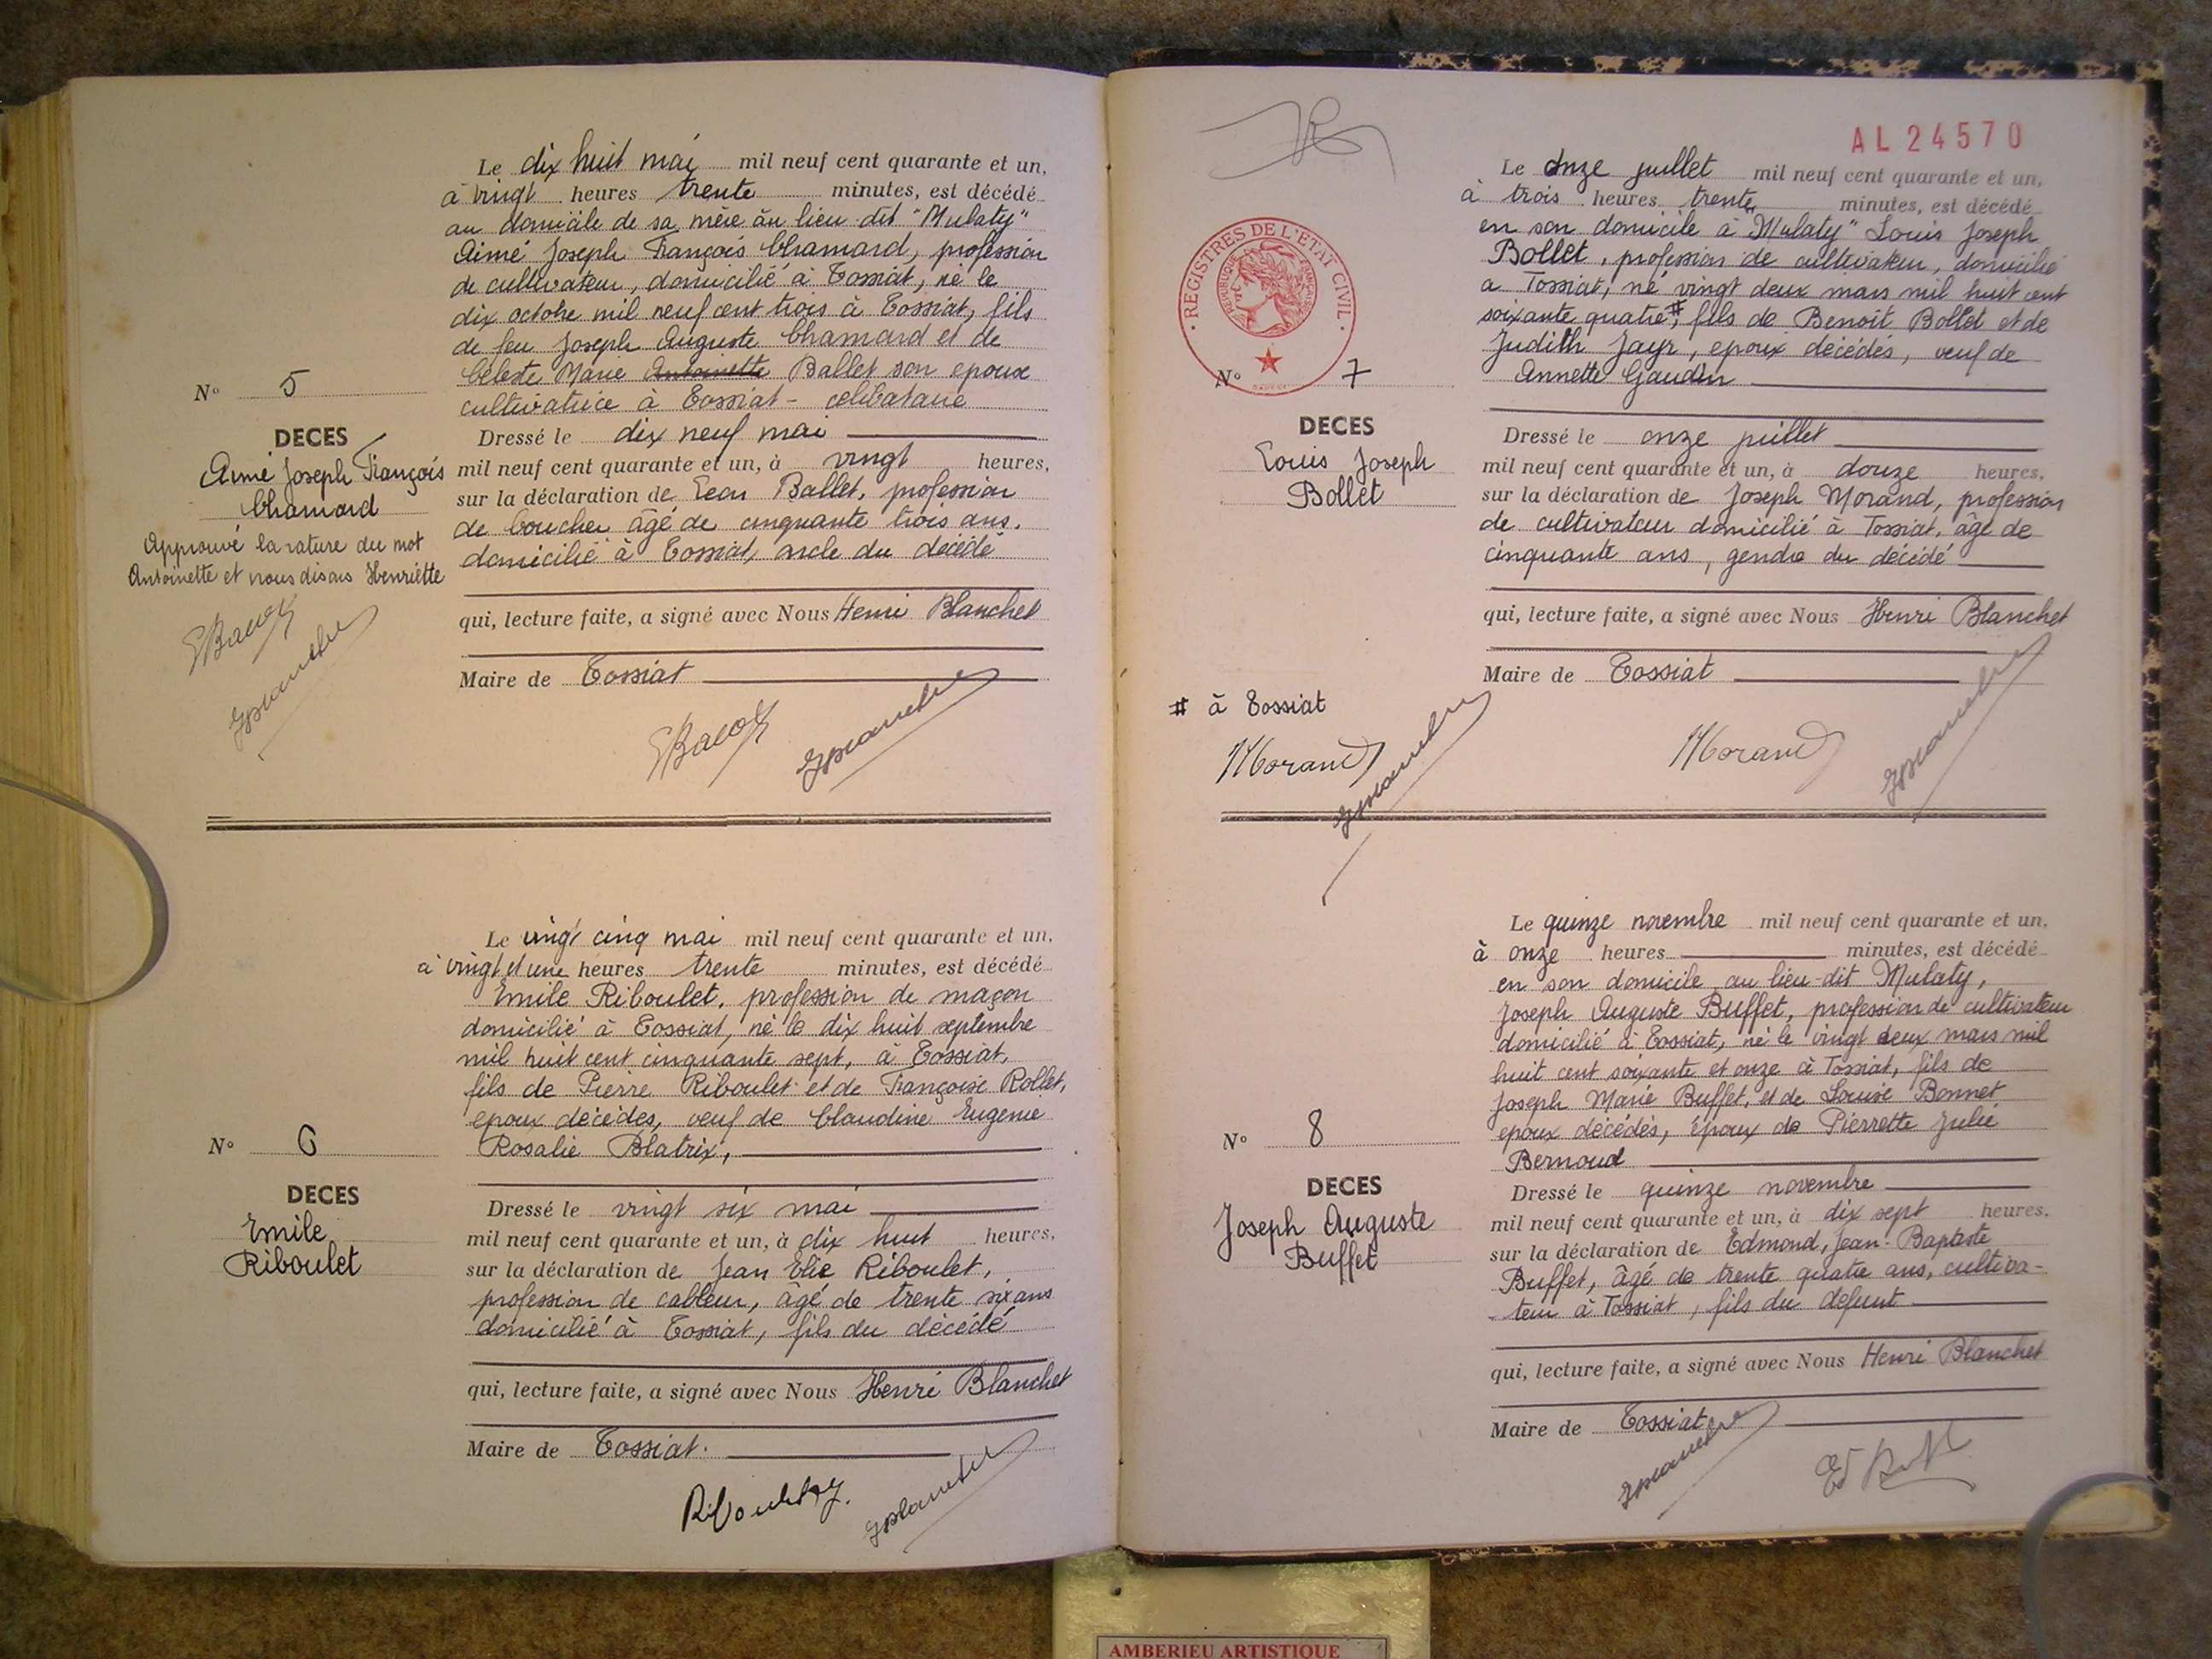 Le dix huit mai mil neuf cent quarante et un,
à vingt heures trente minutes, est décédé
au domicile de sa mère au lieu-dit "Mulaty"
Aimé Joseph François Chamard, profession
de cultivateur, domicilié à Tossiat, né le
dix octobre mil neuf cent trois à Tossiat, fils
de feu Joseph Auguste Chamard et de
Céleste Marie Antoinette Ballet son epouse
cultivatrice à Tossiat - célibataire
N° 5
DECES
Aimé Joseph François
Chamard
Approuvé la rature du mot
Antoinette et nous disons Henriette
Dressé le dix neuf mai
mil neuf cent quarante et un, à vingt heures,
sur la déclaration de Léon Ballet, profession
de boucher âgé de cinquante trois ans,
domicilié à Tossiat, oncle du décédé
qui, lecture faite, a signé avec Nous Henri Blanchet
Maire de Tossiat
Le vingt cinq mai mil neuf cent quarante et un,
à vingt et une heures trente minutes, est décédé
Emile Riboulet, profession de maçon
domicilié à Tossiat, né le dix huit septembre
mil huit cent cinquante sept, à Tossiat,
fils de Pierre Riboulet et de Françoise Rollet,
epoux décédés, veuf de Claudine Eugenie
Rosalie Blatrix,
N° 6
DECES
Emile
Riboulet
Dressé le vingt six mai
mil neuf cent quarante et un, à dix huit heures,
sur la déclaration de Jean Elie Riboulet,
profession de cableur, âgé de trente six ans
domicilié à Tossiat, fils du décédé
qui, lecture faite, a signé avec Nous Henri Blanchet
Maire de Tossiat.
AL 24570
REGISTRES DE L'ETAT CIVIL
REPUBLIQUE FRANÇAISE
Le onze juillet mil neuf cent quarante et un,
à trois heures trente minutes, est décédé
en son domicile à "Mulaty" Louis Joseph
Bollet, profession de cultivateur, domicilié
a Tossiat, né vingt deux mars mil huit cent
soixante quatre #, fils de Benoit Bollet et de
Judith Jayr, epoux décédés, veuf de
Annette Gaudin
N° 7
DECES
Louis Joseph
Bollet
Dressé le onze juillet
mil neuf cent quarante et un, à douze heures,
sur la déclaration de Joseph Morand, profession
de cultivateur domicilié à Tossiat, âgé de
cinquante ans, gendre du décédé
qui, lecture faite, a signé avec Nous Henri Blanchet
Maire de Tossiat
# à Tossiat
Morand
Morand
Le quinze novembre mil neuf cent quarante et un,
à onze heures minutes, est décédé
en son domicile au lieu-dit Mulaty,
Joseph Auguste Buffet, profession de cultivateur
domicilié à Tossiat, né le vingt deux mars mil
huit cent soixante et onze à Tossiat, fils de
Joseph Marie Buffet, et de Louise Bonnet
epoux décédés, époux de Pierrette Julie
Bernoud
N° 8
DECES
Joseph Auguste
Buffet
Dressé le quinze novembre
mil neuf cent quarante et un, à dix sept heures,
sur la déclaration de Edmond, Jean-Baptiste
Buffet, âgé de trente quatre ans, cultiva-
teur à Tossiat, fils du defunt
qui, lecture faite, a signé avec Nous Henri Blanchet
Maire de Tossiat
AMBERIEU ARTISTIQUE